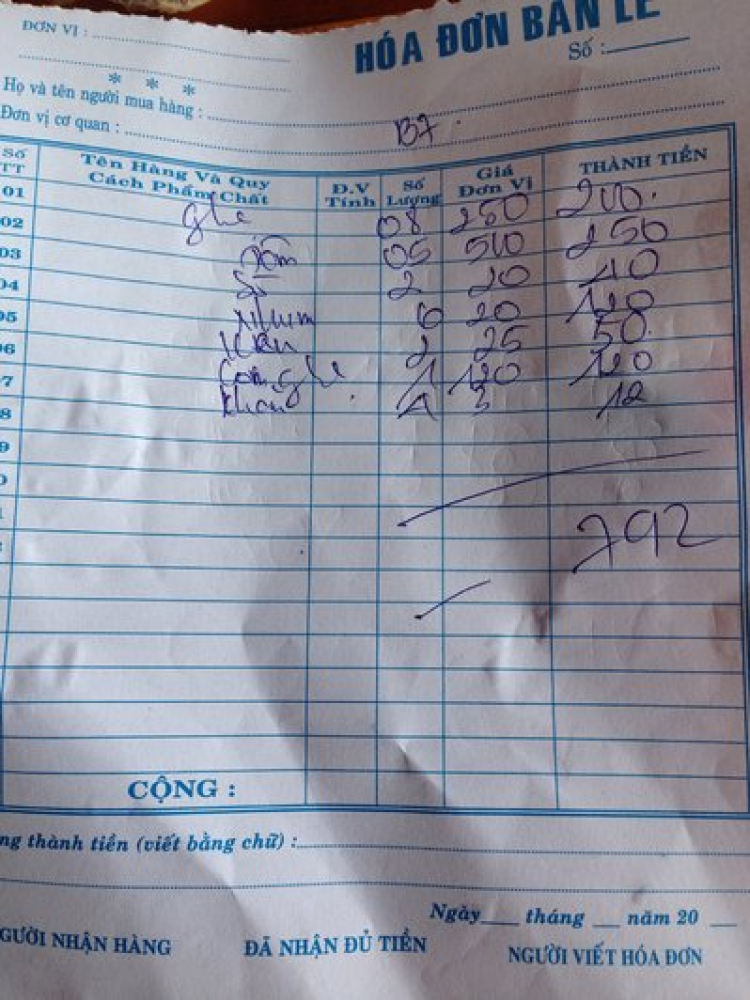 ĐƠN VỊ :
HÓA ĐƠN BÁN LẺ
Số :
* * *
Họ và tên người mua hàng :
Đơn vị cơ quan :
B7
Số TT Tên Hàng Và Quy Cách Phẩm Chất Đ.V Tính Số Lượng Giá Đơn Vị THÀNH TIỀN
01 ghẹ 08 250 200
02 tôm 05 500 250
03 2 20 40
04 Nhum 6 20 120
05 2 25 50
06 Công ghẹ 1 120 120
7 khăn 4 3 12
8
9
792
CỘNG :
ng thành tiền (viết bằng chữ) :
Ngày tháng năm 20
GƯỜI NHẬN HÀNG ĐÃ NHẬN ĐỦ TIỀN NGƯỜI VIẾT HÓA ĐƠN